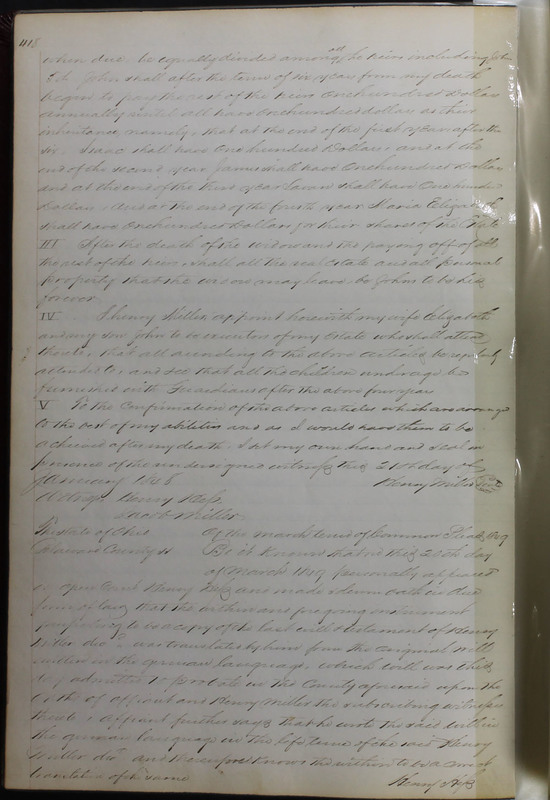 418
when due, be equally divided among all the heirs including John
But John shall after the term of six years from my death
begin to pay the rest of the heirs One hundred Dollars
annually until all have One hundred dollars as their
inheritance, namely, that at the end of the first year after the
six, Isaac shall have One hundred Dollars and at the
end of the second year James shall have One hundred Dollars
and at the end of the third year Levan shall have One hundred
Dollars, and at the end of the fourth year Maria Elizabeth
shall have One hundred Dollars for their share of the Estate
III After the death of the widow and the paying off of all
the rest of the heirs, shall all the real estate and all personal
property that the widow may leave be Johns to be his
forever
IV I henry Miller, appoint herewith my wife Elizabeth
and my son John to be executors of my Estate who shall attend
thereto, that all according to the above articles be regularly
attended to, and see that all the children under age be
furnished with Guardians after the above four year
V To the Confirmation of the above articles which are arranged
to the best of my abilities and as I would have them to be
achieved after my death. I set my own hand and seal in
presence of the undersigned witness this 21st day of
January 1848 Henry Miller Seal
Witness Henry Hess
Jacob Miller
The State of Ohio Of the march term of Common Pleas, 1849
County ss Be it Known that on the 20th day
of March 1849, personally appeared
in open Court Henry and made solemn oath in due
form of law, that the within and foregoing instrument
purporting to be a copy of the last will & testament of Henry
Miller decd was translated by him from the original will
written in the german language, which will was this
day admitted to probate in the County aforesaid upon the
Oath of affiant and Henry Miller the subscribing witnesses
thereto; affiant further says that he wrote the said will in
the german language in the life time of the said Henry
Miller decd and therefore knows the within to be a correct
translation of the same Henry Hess